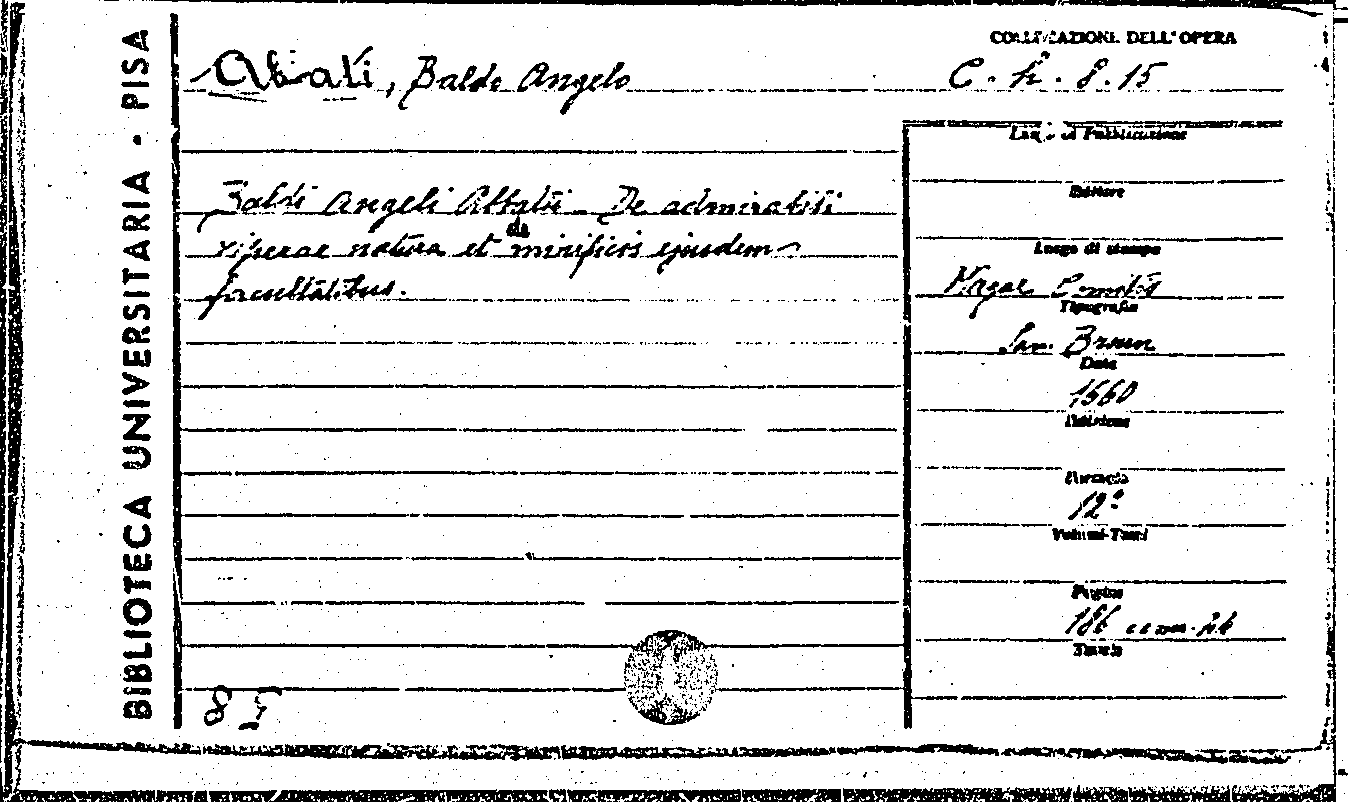 BIBLIOTECA UNIVERSITARIA - PISA
Abati, Baldo Angelo
COLLOCAZIONE DELL'OPERA
C. h. 8. 15
Baldi Angeli Abbatii - De admirabili
viperae natura et de mirificis ejusdem
facultatibus.
Luogo di Pubblicazione
Editore
Luogo di stampa
Hagae Comitis
Tipografia
Sam. Broun
Data
1660
Edizione
Formato
12°
Volumi-Tomi
Pagine
186
Tavole
8